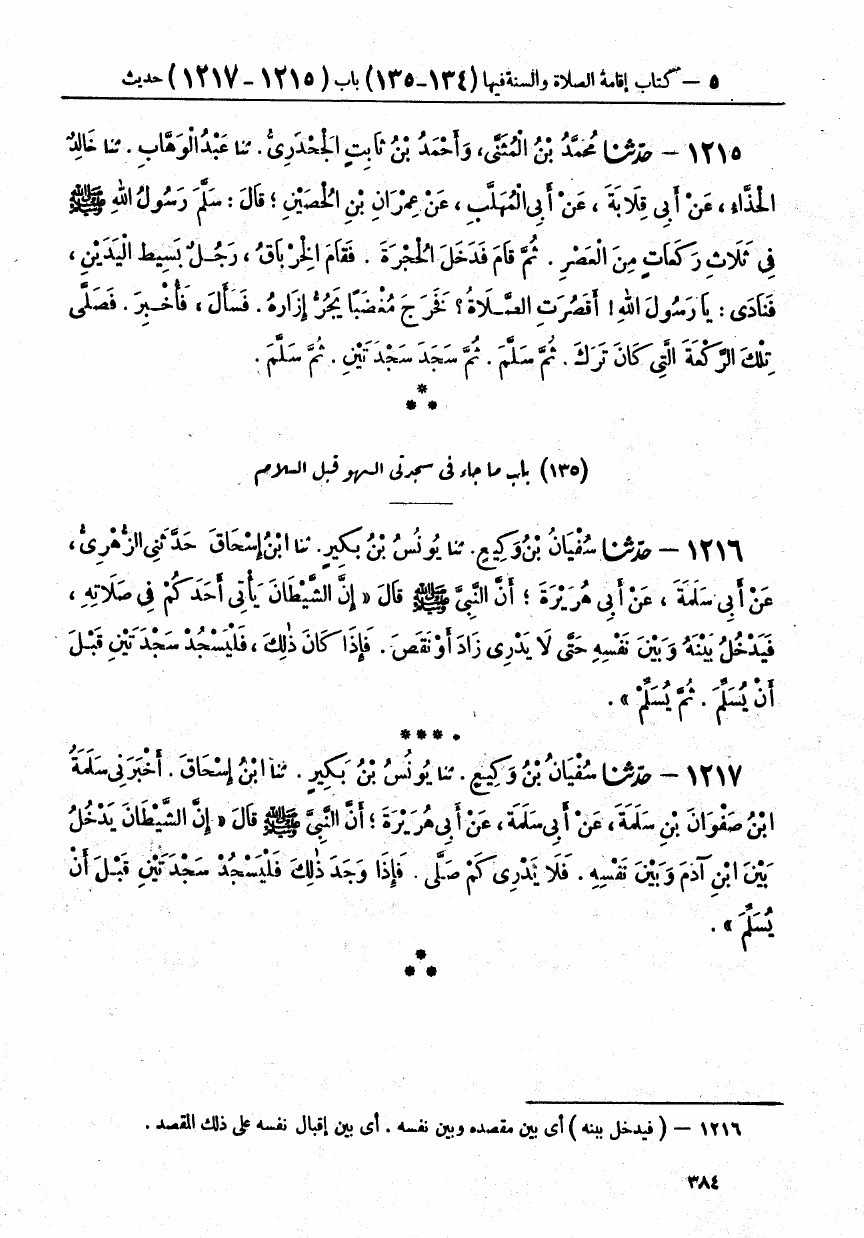 ٥ – كتاب إقامة الصلاة والسنة فيها (١٣٤-١٣٥) باب (١٢١٥-١٢١٧) حديث
١٢١٥ – حدّثنا مُحَمَّدُ بْنُ الْمُثَنَّى، وَأَحْمَدُ بْنُ ثَابِتٍ الْجَحْدَرِىُّ. ثنا عَبْدُ الْوَهَّابِ. ثنا خَالِدٌ
الْحَذَّاءِ، عَنْ أَبِى قِلَابَةَ، عَنْ أَبِى الْمُهَلَّبِ، عَنْ عِمْرَانِ بْنِ الْحُصَيْنِ؛ قَالَ: سَلَّمَ رَسُولُ اللهِ ﷺ
فِى ثَلَاثِ رَكَعَاتٍ مِنَ الْعَصْرِ. ثُمَّ قَامَ فَدَخَلَ الْحُجْرَةَ. فَقَامَ الْخِرْبَاقُ، رَجُلٌ بَسِيطُ الْيَدَيْنِ،
فَنَادَى: يَا رَسُولَ اللهِ! أَقَصُرَتِ الصَّلَاةُ؟ نَخَرَجَ مُغْضَبًا يَجُرُّ إِزَارَهُ. فَسَأَلَ، فَأُخْبِرَ. فَصَلَّى
تِلْكَ الرَّكْعَةَ الَّتِى كَانَ تَرَكَ. ثُمَّ سَلَّمَ. ثُمَّ سَجَدَ سَجْدَتَيْنِ. ثُمَّ سَلَّمَ.
*
* *
(١٣٥) باب ما جاء فى سجدتى السهو قبل السلام
١٢١٦ – حدّثنا سُفْيَانُ بْنُ وَكِيعٍ. ثنا يُونُسُ بْنُ بُكَيرٍ. ثنا ابْنُ إِسْحَاقَ حَدَّثَنِى الزُّهْرِىُّ،
عَنْ أَبِى سَلَمَةَ، عَنْ أَبِى هُرَيْرَةَ؛ أَنَّ النَّبِىَّ ﷺ قَالَ «إِنَّ الشَّيْطَانَ يَأْتِى أَحَدَكُمْ فِى صَلَاتِهِ،
فَيَدْخُلُ بَيْنَهُ وَبَيْنَ نَفْسِهِ حَتَّى لَا يَدْرِى زَادَ أَوْ نَقَصَ. فَإِذَا كَانَ ذٰلِكَ، فَلْيَسْجُدْ سَجْدَتَيْنِ قَبْلَ
أَنْ يُسَلِّمَ. ثُمَّ يُسَلِّمْ».
* * * *
١٢١٧ – حدّثنا سُفْيَانُ بْنُ وَكِيعٍ. ثنا يُونُسُ بْنُ بَكِيرٍ. ثنا ابْنُ إِسْحَاقَ. أَخْبَرَنِى سَلَمَةُ
ابْنُ صَفْوَانَ بْنِ سَلَمَةَ، عَنْ أَبِى سَلَمَةَ، عَنْ أَبِى هُرَيْرَةَ؛ أَنَّ النَّبِىَّ ﷺ قَالَ «إِنَّ الشَّيْطَانَ يَدْخُلُ
بَيْنَ ابْنِ آدَمَ وَبَيْنَ نَفْسِهِ. فَلَا يَدْرِى كَمْ صَلَّى. فَإِذَا وَجَدَ ذٰلِكَ فَلْيَسْجُدْ سَجْدَتَيْنِ قَبْلَ أَنْ
يُسَلِّمَ».
*
* *
١٢١٦ – (فيدخل بينه) أى بين مقصده وبين نفسه. أى بين إقبال نفسه على ذلك المقصد.
٣٨٤